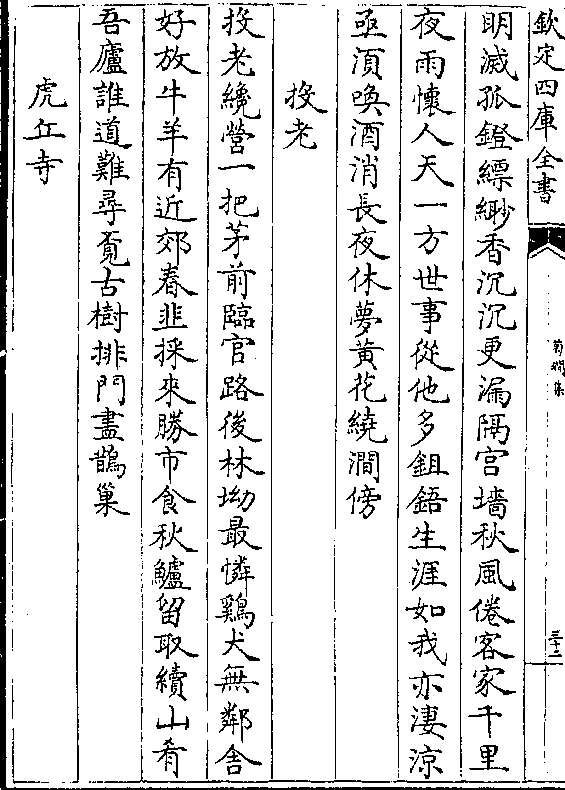 欽定四庫全書
菊磵集
三十二
明滅孤鐙縹緲香沉沉更漏隔宫墻秋風倦客家千里
夜雨懷人天一方世事從他多鉏鋙生涯如我亦淒涼
亟湏喚酒消長夜休夢黃花繞澗傍
投老
投老纔營一把茅前臨官路後林坳最憐鷄犬無鄰舍
好放牛羊有近郊春韭採來勝市食秋鱸留取續山肴
吾廬誰道難尋覔古樹排門盡鵲巢
虎丘寺